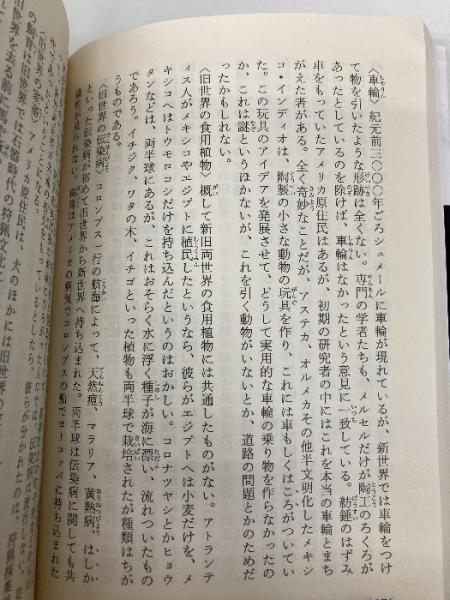 〈車輪〉紀元前三〇〇〇年ごろシュメールに車輪が現れているが、新世界では車輪をつけ
て物を引いたような形跡は全くない。専門の学者たちも、メルセルだけが陶工のろくろが
あったとしているのを除けば、車輪はなかったという意見に一致している。紡錘のはずみ
車をもっていたアメリカ原住民はあるが、初期の研究者の中にはこれを本当の車輪とまち
がえた者がある。全く奇妙なことだが、アステカ、オルメカその他半文明化したメキシ
コ・インディオは、陶製の小さな動物の玩具を作り、これには車もしくはころがついてい
た。この玩具のアイデアを発展させて、どうして実用的な車輪の乗り物を作らなかったの
か、これは謎というほかないが、これを引く動物がいないとか、道路の問題とかのためだ
ったかもしれない。
〈旧世界の食用植物〉概して新旧両世界の食用植物には共通したものがない。アトランテ
ィス人がメキシコやエジプトに植民したというなら、彼らがエジプトへは小麦だけを、メ
キシコへはトウモロコシだけを持ち込んだというのはおかしい。ココナツヤシとかヒョウ
タンなどは、両半球にあるが、これはおそらく水に浮く種子が海に漂い、流れついたもの
であろう。イチジク、ワタの木、イチゴといった植物も両半球で栽培されたが種類はちが
うものである。
〈旧世界の伝染病〉コロンブス一行の航海によって、天然痘、マラリア、黄熱病、はしか
といった伝染病が初めて旧世界から新世界へ持ち込まれた。両半球は伝染病に関しても共
通性が見られない。
〈旧世界の家畜〉
カ原住民は、犬のほかには旧世界の